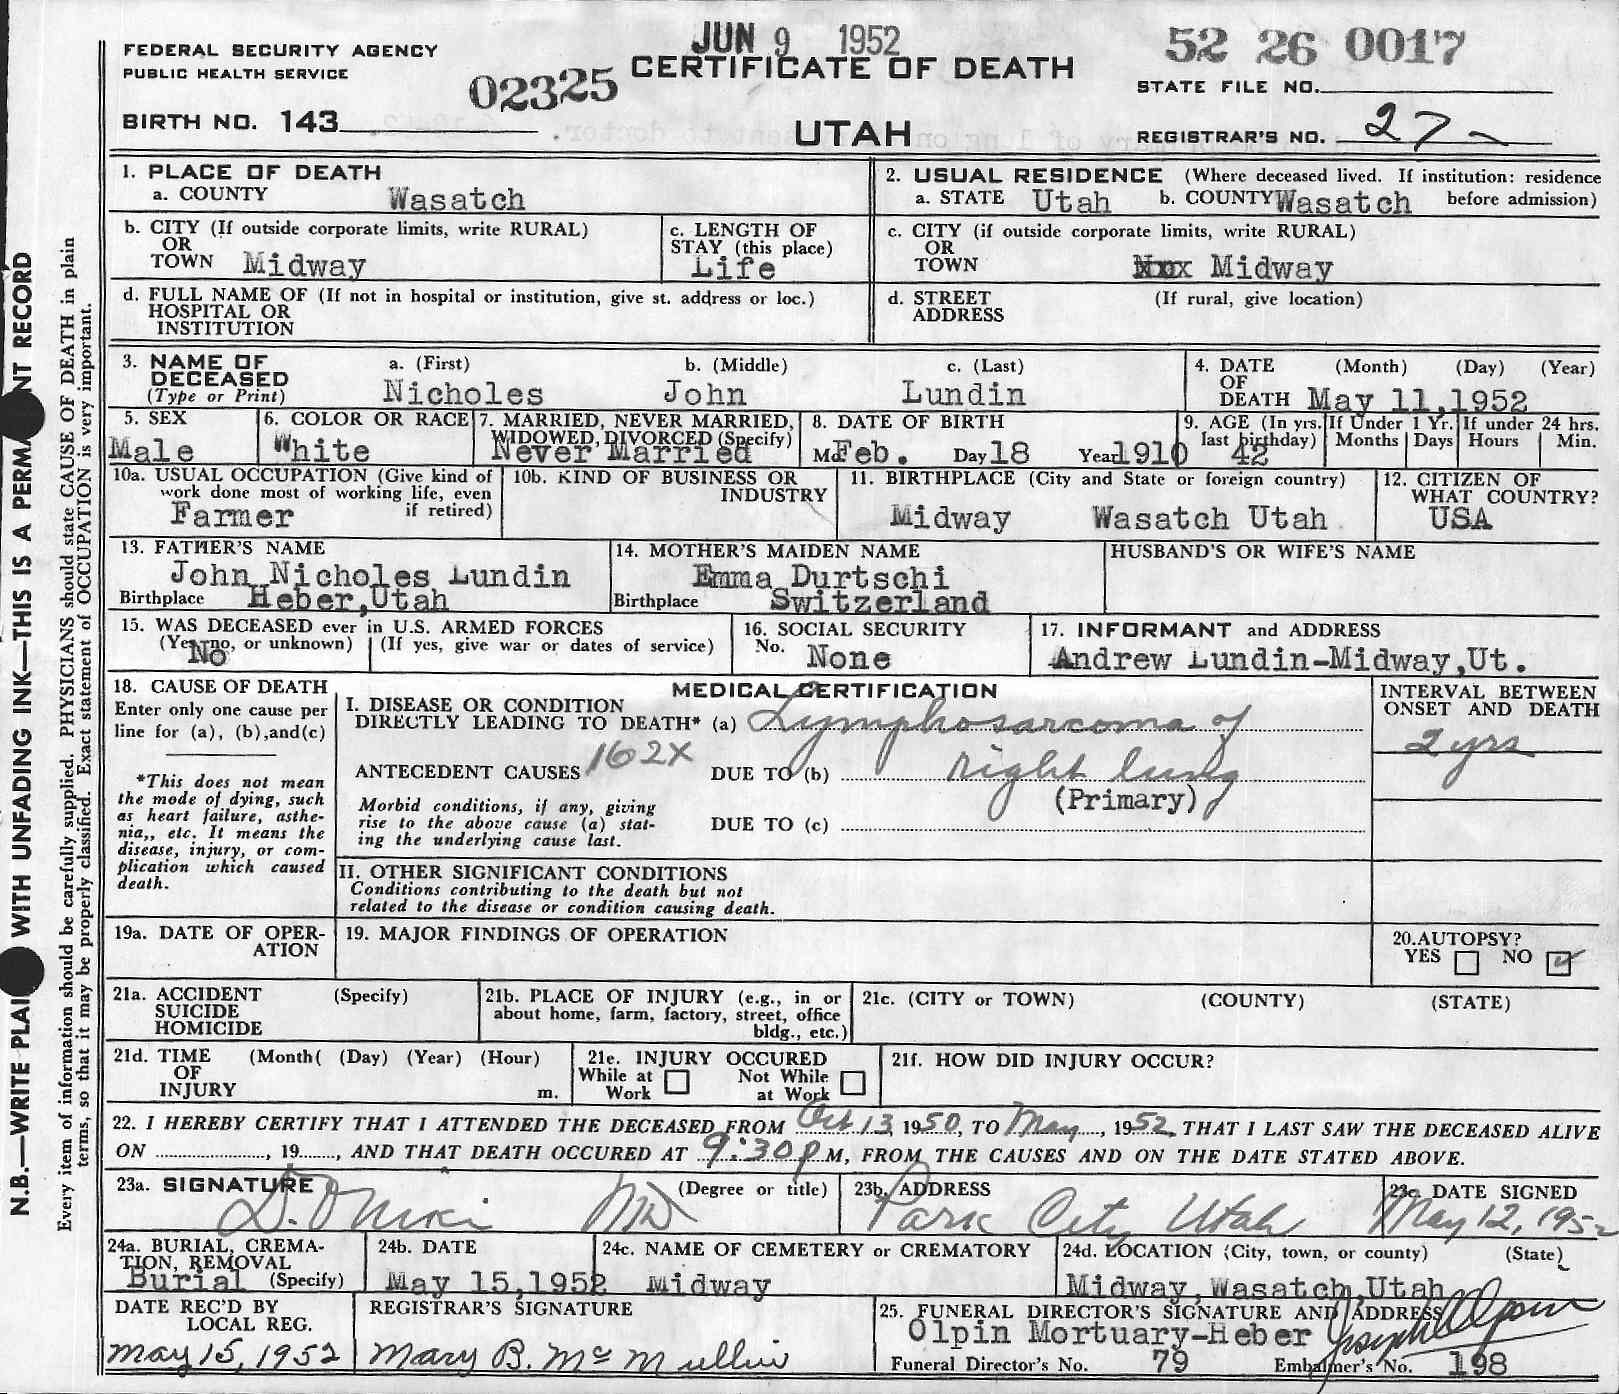 JUN 9 1952
52 26 0017
FEDERAL SECURITY AGENCY
PUBLIC HEALTH SERVICE
02325
CERTIFICATE OF DEATH
STATE FILE NO.
BIRTH NO. 143
UTAH
REGISTRAR'S NO. 27
1. PLACE OF DEATH
a. COUNTY Wasatch
2. USUAL RESIDENCE (Where deceased lived. If institution: residence before admission)
a. STATE Utah b. COUNTY Wasatch
b. CITY (If outside corporate limits, write RURAL)
OR
TOWN Midway
c. LENGTH OF
STAY (this place)
Life
c. CITY (if outside corporate limits, write RURAL)
OR
TOWN Midway
d. FULL NAME OF (If not in hospital or institution, give st. address or loc.)
HOSPITAL OR
INSTITUTION
d. STREET (If rural, give location)
ADDRESS
3. NAME OF
DECEASED
(Type or Print)
a. (First) b. (Middle) c. (Last)
Nicholes John Lundin
4. DATE (Month) (Day) (Year)
OF
DEATH May 11,1952
5. SEX
Male
6. COLOR OR RACE
White
7. MARRIED, NEVER MARRIED,
WIDOWED, DIVORCED (Specify)
Never Married
8. DATE OF BIRTH
Mo. Feb. Day 18 Year 1910
9. AGE (In yrs.
last birthday)
42
If Under 1 Yr.
Months Days
If under 24 hrs.
Hours Min.
10a. USUAL OCCUPATION (Give kind of
work done most of working life, even
if retired)
Farmer
10b. KIND OF BUSINESS OR
INDUSTRY
11. BIRTHPLACE (City and State or foreign country)
Midway Wasatch Utah
12. CITIZEN OF
WHAT COUNTRY?
USA
13. FATHER'S NAME
John Nicholes Lundin
Birthplace Heber,Utah
14. MOTHER'S MAIDEN NAME
Emma Durtschi
Birthplace Switzerland
HUSBAND'S OR WIFE'S NAME
15. WAS DECEASED ever in U.S. ARMED FORCES
(Yes, no, or unknown) (If yes, give war or dates of service)
No
16. SOCIAL SECURITY
No. None
17. INFORMANT and ADDRESS
Andrew Lundin-Midway,Ut.
18. CAUSE OF DEATH
Enter only one cause per
line for (a), (b),and(c)
*This does not mean
the mode of dying, such
as heart failure, asthe-
nia,, etc. It means the
disease, injury, or com-
plication which caused
death.
MEDICAL CERTIFICATION
I. DISEASE OR CONDITION
DIRECTLY LEADING TO DEATH* (a) Lymphosarcoma of
162X
ANTECEDENT CAUSES DUE TO (b) right lung
(Primary)
Morbid conditions, if any, giving
rise to the above cause (a) stat-
ing the underlying cause last.
DUE TO (c)
INTERVAL BETWEEN
ONSET AND DEATH
2 yrs
II. OTHER SIGNIFICANT CONDITIONS
Conditions contributing to the death but not
related to the disease or condition causing death.
19a. DATE OF OPER-
ATION
19. MAJOR FINDINGS OF OPERATION
20. AUTOPSY?
YES NO ✓
21a. ACCIDENT (Specify)
SUICIDE
HOMICIDE
21b. PLACE OF INJURY (e.g., in or
about home, farm, factory, street, office
bldg., etc.)
21c. (CITY or TOWN) (COUNTY) (STATE)
21d. TIME (Month( (Day) (Year) (Hour)
OF
INJURY m.
21e. INJURY OCCURED
While at Work Not While at Work
21f. HOW DID INJURY OCCUR?
22. I HEREBY CERTIFY THAT I ATTENDED THE DECEASED FROM Oct 13, 1950, TO May, 1952, THAT I LAST SAW THE DECEASED ALIVE
ON , 19 , AND THAT DEATH OCCURED AT 9:30 P M, FROM THE CAUSES AND ON THE DATE STATED ABOVE.
23a. SIGNATURE (Degree or title)
MD
23b. ADDRESS
Park City Utah
23c. DATE SIGNED
May 12, 1952
24a. BURIAL, CREMA-
TION, REMOVAL
Burial (Specify)
24b. DATE
May 15,1952
24c. NAME OF CEMETERY or CREMATORY
Midway
24d. LOCATION (City, town, or county) (State)
Midway,Wasatch,Utah
DATE REC'D BY
LOCAL REG.
May 15, 1952
REGISTRAR'S SIGNATURE
Mary B. McMullin
25. FUNERAL DIRECTOR'S SIGNATURE AND ADDRESS
Olpin Mortuary-Heber Joseph Olpin
Funeral Director's No. 79 Embalmer's No. 198
N.B.—WRITE PLAI WITH UNFADING INK—THIS IS A PERMA NT RECORD
Every item of information should be carefully supplied. PHYSICIANS should state CAUSE OF DEATH in plain
terms, so that it may be properly classified. Exact statement of OCCUPATION is very important.